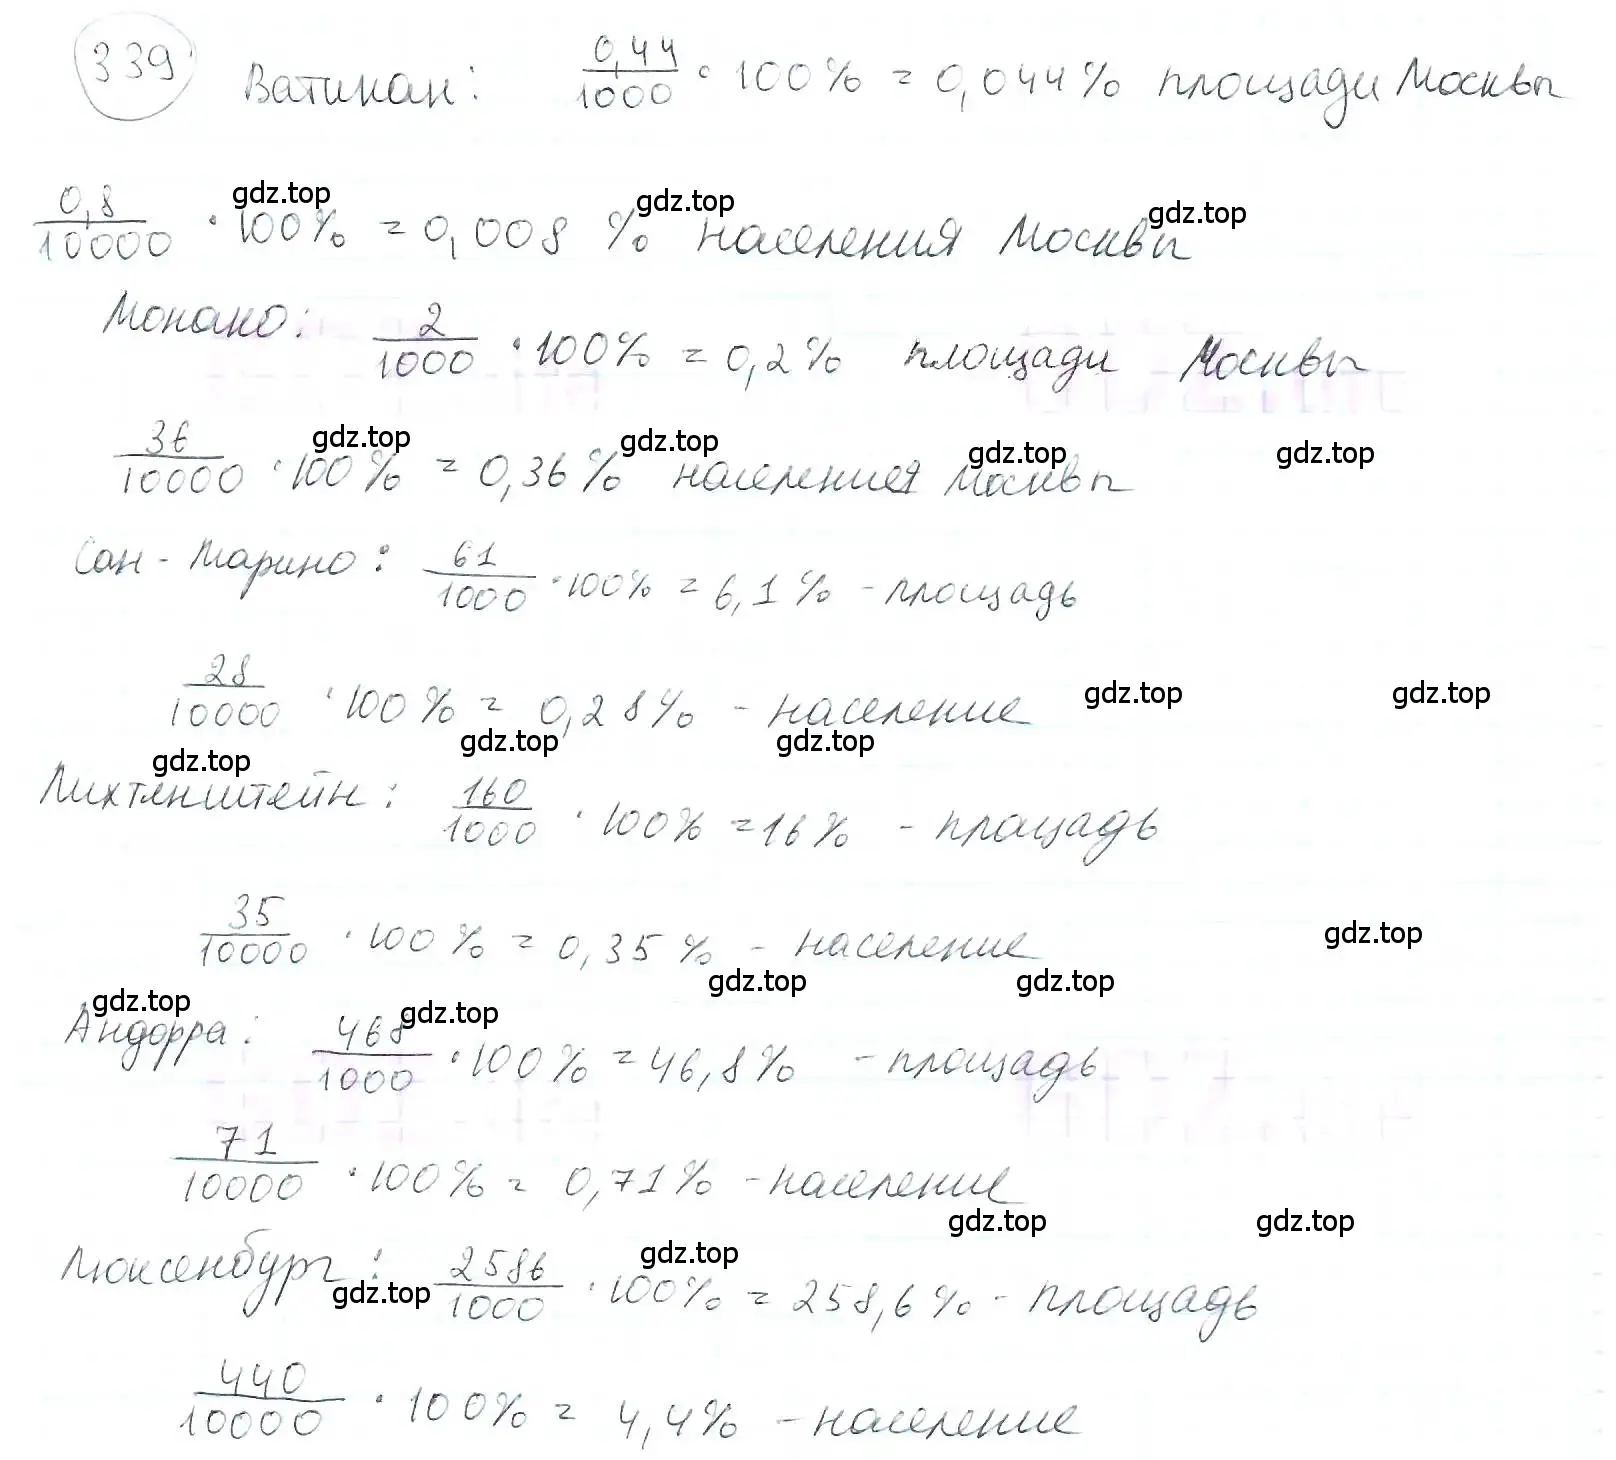 339 Ватикан: 0,44/1000 · 100% = 0,044% площади Москвы
gdz.top gdz.top gdz.top
0,8/10000 · 100% = 0,008 % населения Москвы
Монако: 2/1000 · 100% = 0,2% площади Москвы
gdz.top gdz.top gdz.top gdz.top
36/10000 · 100% = 0,36% населения Москвы
Сан-Марино: 61/1000 · 100% = 6,1% - площадь
28/10000 · 100% = 0,28% - население gdz.top gdz.top
gdz.top gdz.top gdz.top
Лихтенштейн: 160/1000 · 100% = 16% - площадь
35/10000 · 100% = 0,35% - население gdz.top
gdz.top gdz.top gdz.top gdz.top
Андорра: 468/1000 · 100% = 46,8% - площадь
71/10000 · 100% = 0,71% - население
gdz.top gdz.top
Люксенбург: 2586/1000 · 100% = 258,6% - площадь
gdz.top gdz.top
440/10000 · 100% = 4,4% - население